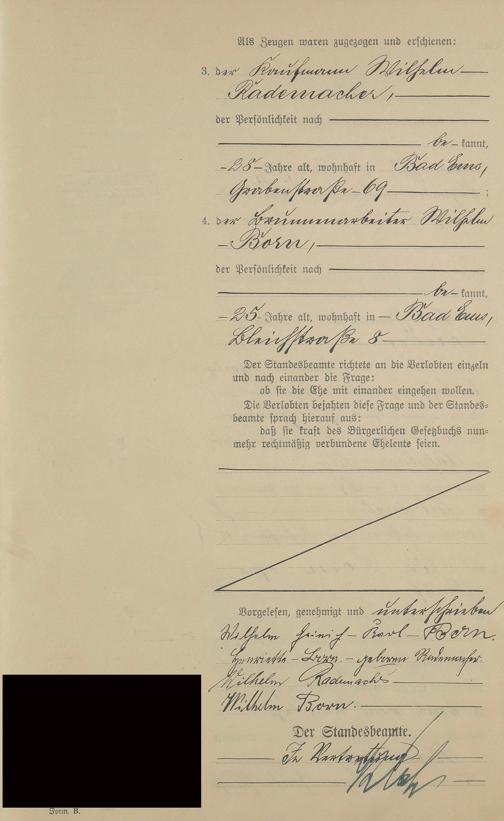 Als Zeugen waren zugezogen und erschienen:
3. der Kaufmann Wilhelm
Rademacher,
der Persönlichkeit nach
be- kannt,
-28- Jahre alt, wohnhaft in Bad Ems,
Grabenstraße 69 ;
4. der Brunnenarbeiter Wilhelm
Born,
der Persönlichkeit nach
be- kannt,
-25 Jahre alt, wohnhaft in Bad Ems,
Bleichstraße 8
Der Standesbeamte richtete an die Verlobten einzeln
und nach einander die Frage:
ob sie die Ehe mit einander eingehen wollen.
Die Verlobten bejahten diese Frage und der Standes-
beamte sprach hierauf aus:
daß sie kraft des Bürgerlichen Gesetzbuchs nun-
mehr rechtmäßig verbundene Eheleute seien.
Vorgelesen, genehmigt und unterschrieben
Wilhelm Heinrich Karl Born.
Henriette Born geboren Rademacher.
Wilhelm Rademacher
Wilhelm Born.
Der Standesbeamte.
In Vertretung
Form. B.